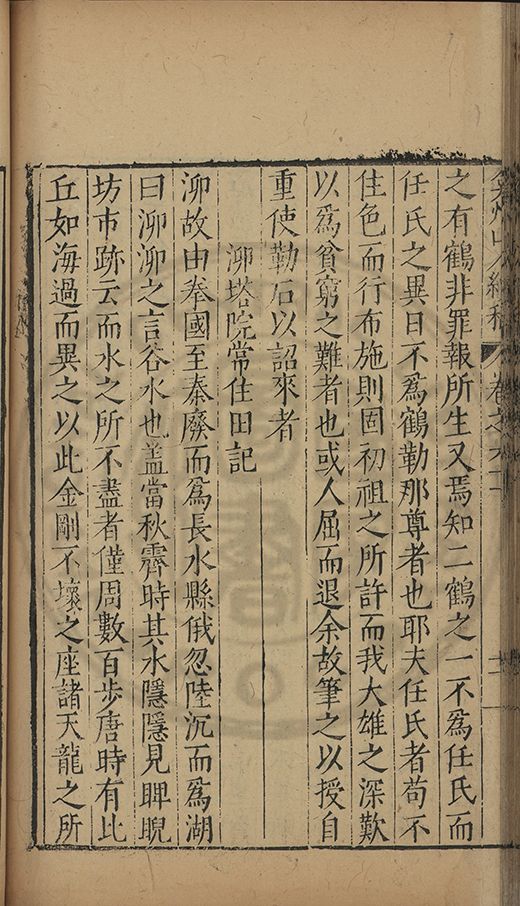 弇州山人續稿 卷之六十
之有鶴非罪報所生又焉知二鶴之一不為任氏而
任氏之異日不為鶴勒那尊者也耶夫任氏者苟不
住色而行布施則固初祖之所許而我大雄之深歎
以為貧窮之難者也或人屈而退余故筆之以授自
重使勒石以詔來者
泖塔院常住田記
泖故由拳國至秦廢而爲長水縣俄忽陸沉而爲湖
曰泖泖之言谷水也盖當秋霽時其水隱隱見睥睨
坊市跡云而水之所不盡者僅周數百步唐時有比
丘如海過而異之以此金剛不壞之座諸天龍之所